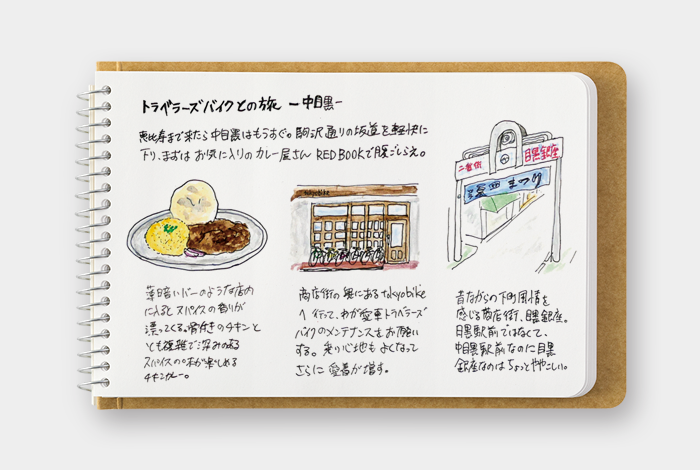 トラベラーズバイクとの旅 ー中目黒ー
恵比寿まで来たら中目黒はもうすぐ。駒沢通りの坂道を軽快に
下り、まずはお気に入りのカレー屋さん RED BOOKで腹ごしらえ。
薄暗いバーのような店内
に入るとスパイスの香りが
漂ってくる。骨付きのチキンと
とも複雑で深みのある
スパイスの味が楽しめる
チキンカレー。
tokyobike
商店街の奥にあるtokyobike
へ行って、わが愛車トラベラーズ
バイクのメンテナンスをお願い
する。乗り心地もよくなって
さらに愛着が増す。
二番街
目黒銀座
まつり
昔ながらの下町風情を
感じる商店街、目黒銀座。
目黒駅前ではなくて、
中目黒駅前なのに目黒
銀座なのはちょっとややこしい。